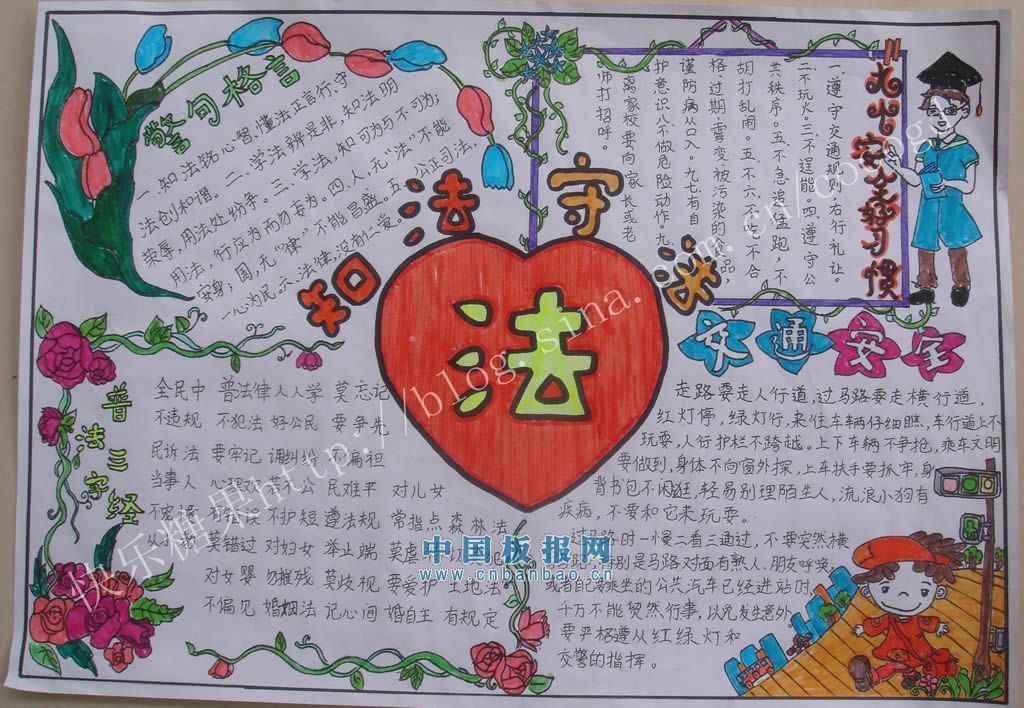 警句格言
一、知法强心智,懂法正言行,守
法创和谐。二、学法辨是非,知法明
荣辱,用法处纷争。三、学法,知可为与不可为;
用法,行应为而勿妄为。四、人,无“法”不能
安身;国,无“律”不能昌盛。五、公正司法,
一心为民。六、法律,没有仁爱。
知法守法
法
安全好习惯
一遵守交通规则,右行礼让。
二不玩火。三、不逞能。四、遵守公
共秩序。五、不急追猛跑,不
胡打乱闹。五、不六、不吃不合
格、过期、霉变被污染的食品,
谨防病从口入。九、七、有自
护意识八不做危险动作。九、
离家校要向家长或老
师打招呼。
交通安全
走路要走人行道,过马路要走横行道,
红灯停,绿灯行,来往车辆仔细瞧,车行道上不
玩耍,人行护栏不跨越。上下车辆不争抢,乘车文明
要做到,身体不向窗外探,上车扶手要抓牢,身
背书包不闲逛,轻易别理陌生人,流浪小狗有
疾病,不要和它来玩耍。
过马路时一慢二看三通过,不要突然横
别是马路对面有熟人、朋友呼唤,
或者自己要乘坐的公共汽车已经进站时,
千万不能贸然行事,以免发生意外。
要严格遵从红绿灯和
交警的指挥。
普法三字经
全民中 普法律 人人学 莫忘记
不违规 不犯法 好公民 要争先
民诉法 要牢记 调纠纷 不偏袒
当事人 公 民难平 对儿女
不护短 遵法规 常指点 森林法
莫错过 对妇女 举止端
对女婴 勿摧残 莫歧视 要爱护 土地法
不偏见 婚姻法 记心间 婚自主 有规定
快乐糖果http://blog.sina.com.cn/coolbg
中国板报网
www.cnbanbao.cn